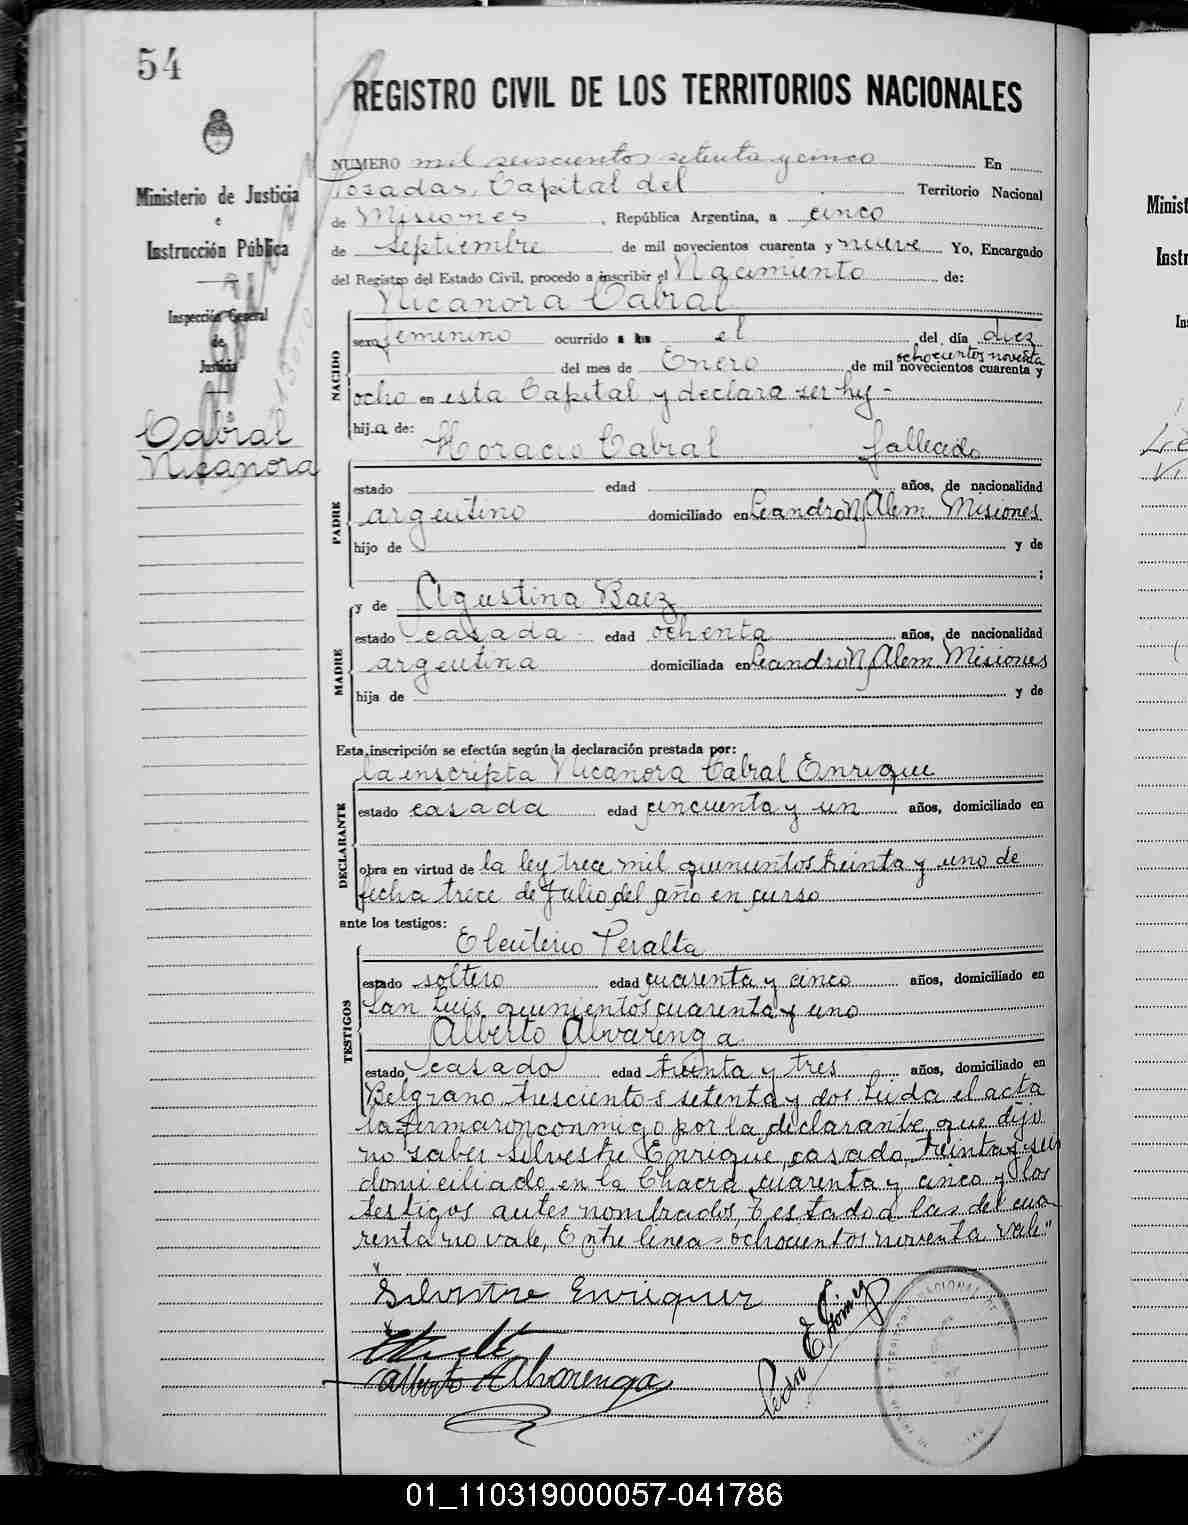 54
REGISTRO CIVIL DE LOS TERRITORIOS NACIONALES
Ministerio de Justicia
e
Instrucción Pública
Inspección General
de
Justicia
Cabral
Nicanora
NUMERO mil seiscientos setenta y cinco En
Posadas, Capital del Territorio Nacional
de Misiones, República Argentina, a cinco
de septiembre de mil novecientos cuarenta y nueve Yo, Encargado
del Registro del Estado Civil, procedo a inscribir el Nacimiento de:
Nicanora Cabral
NACIDO
sexo femenino ocurrido a las el del día diez
ochocientos noventa
del mes de Enero de mil novecientos cuarenta y
ocho en esta Capital y declara ser hij-
hija de:
Horacio Cabral fallecido
PADRE
estado edad años, de nacionalidad
argentino domiciliado en Leandro N. Alem Misiones
hijo de y de
;
y de Agustina Baez
MADRE
estado casada edad ochenta años, de nacionalidad
argentina domiciliada en Leandro N. Alem Misiones
hija de y de
Esta inscripción se efectúa según la declaración prestada por:
la inscripta Nicanora Cabral Enrique
DECLARANTE
estado casada edad cincuenta y un años, domiciliado en
obra en virtud de la ley trece mil quinientos treinta y uno de
fecha trece de Julio del año en curso
ante los testigos:
Eleuterio Peralta
TESTIGOS
estado soltero edad cuarenta y cinco años, domiciliado en
San Luis quinientos cuarenta y uno
Alberto Alvarenga
estado casado edad treinta y tres años, domiciliado en
Belgrano trescientos setenta y dos Leida el acta
la firmaron conmigo por la declarante, que dijo
no saber Silvestre Enrique, casado, treinta y seis
domiciliado en la Chacra cuarenta y cinco y los
testigos antes nombrados, Testado a las del cua-
renta no vale, Entre lineas ochocientos noventa vale"
Silvestre Enriquez
Alberto Alvarenga
Pedro E. Gómez
Minist
Instr
01_110319000057-041786